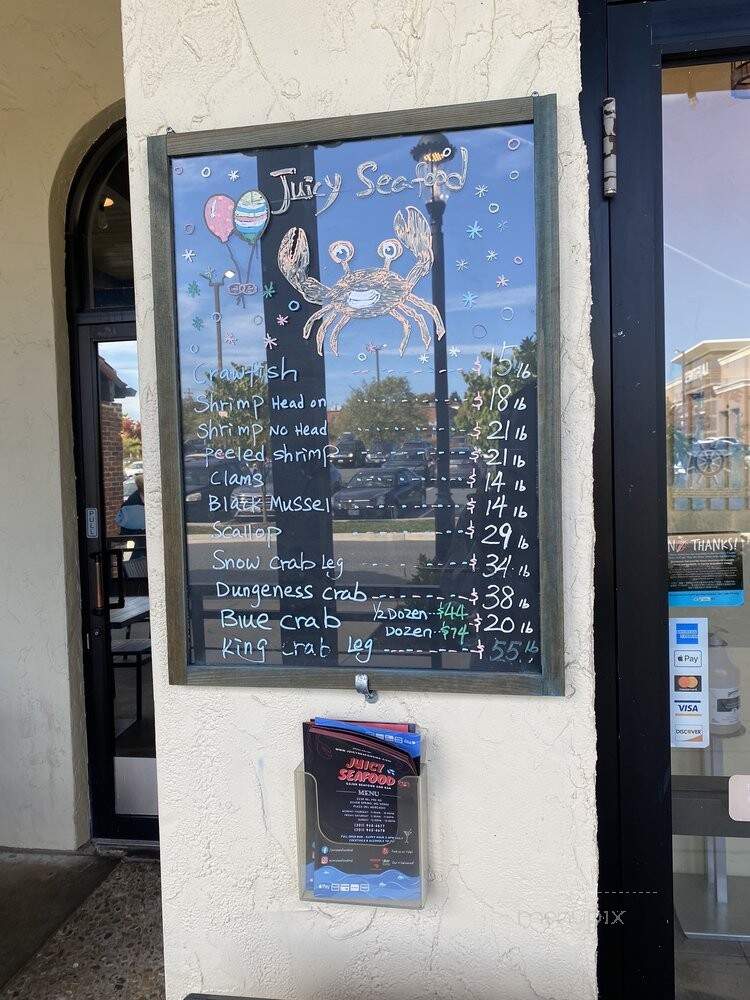 Juicy Seafood
Crawfish ---- $15 lb
Shrimp Head on ---- $18 lb
Shrimp No Head ---- $21 lb
peeled shrimp ---- $21 lb
Clams ---- $14 lb
Black Mussel ---- $14 lb
Scallop ---- $29 lb
Snow crab Leg ---- $34 lb
Dungeness crab ---- $38 lb
Blue crab 1/2 Dozen -- $44 $20 lb
Dozen -- $74
King crab Leg ---- $55 lb
PULL
THANKS!
Pay
VISA
DISCOVER
JUICY
SEAFOOD
MENU
Pay